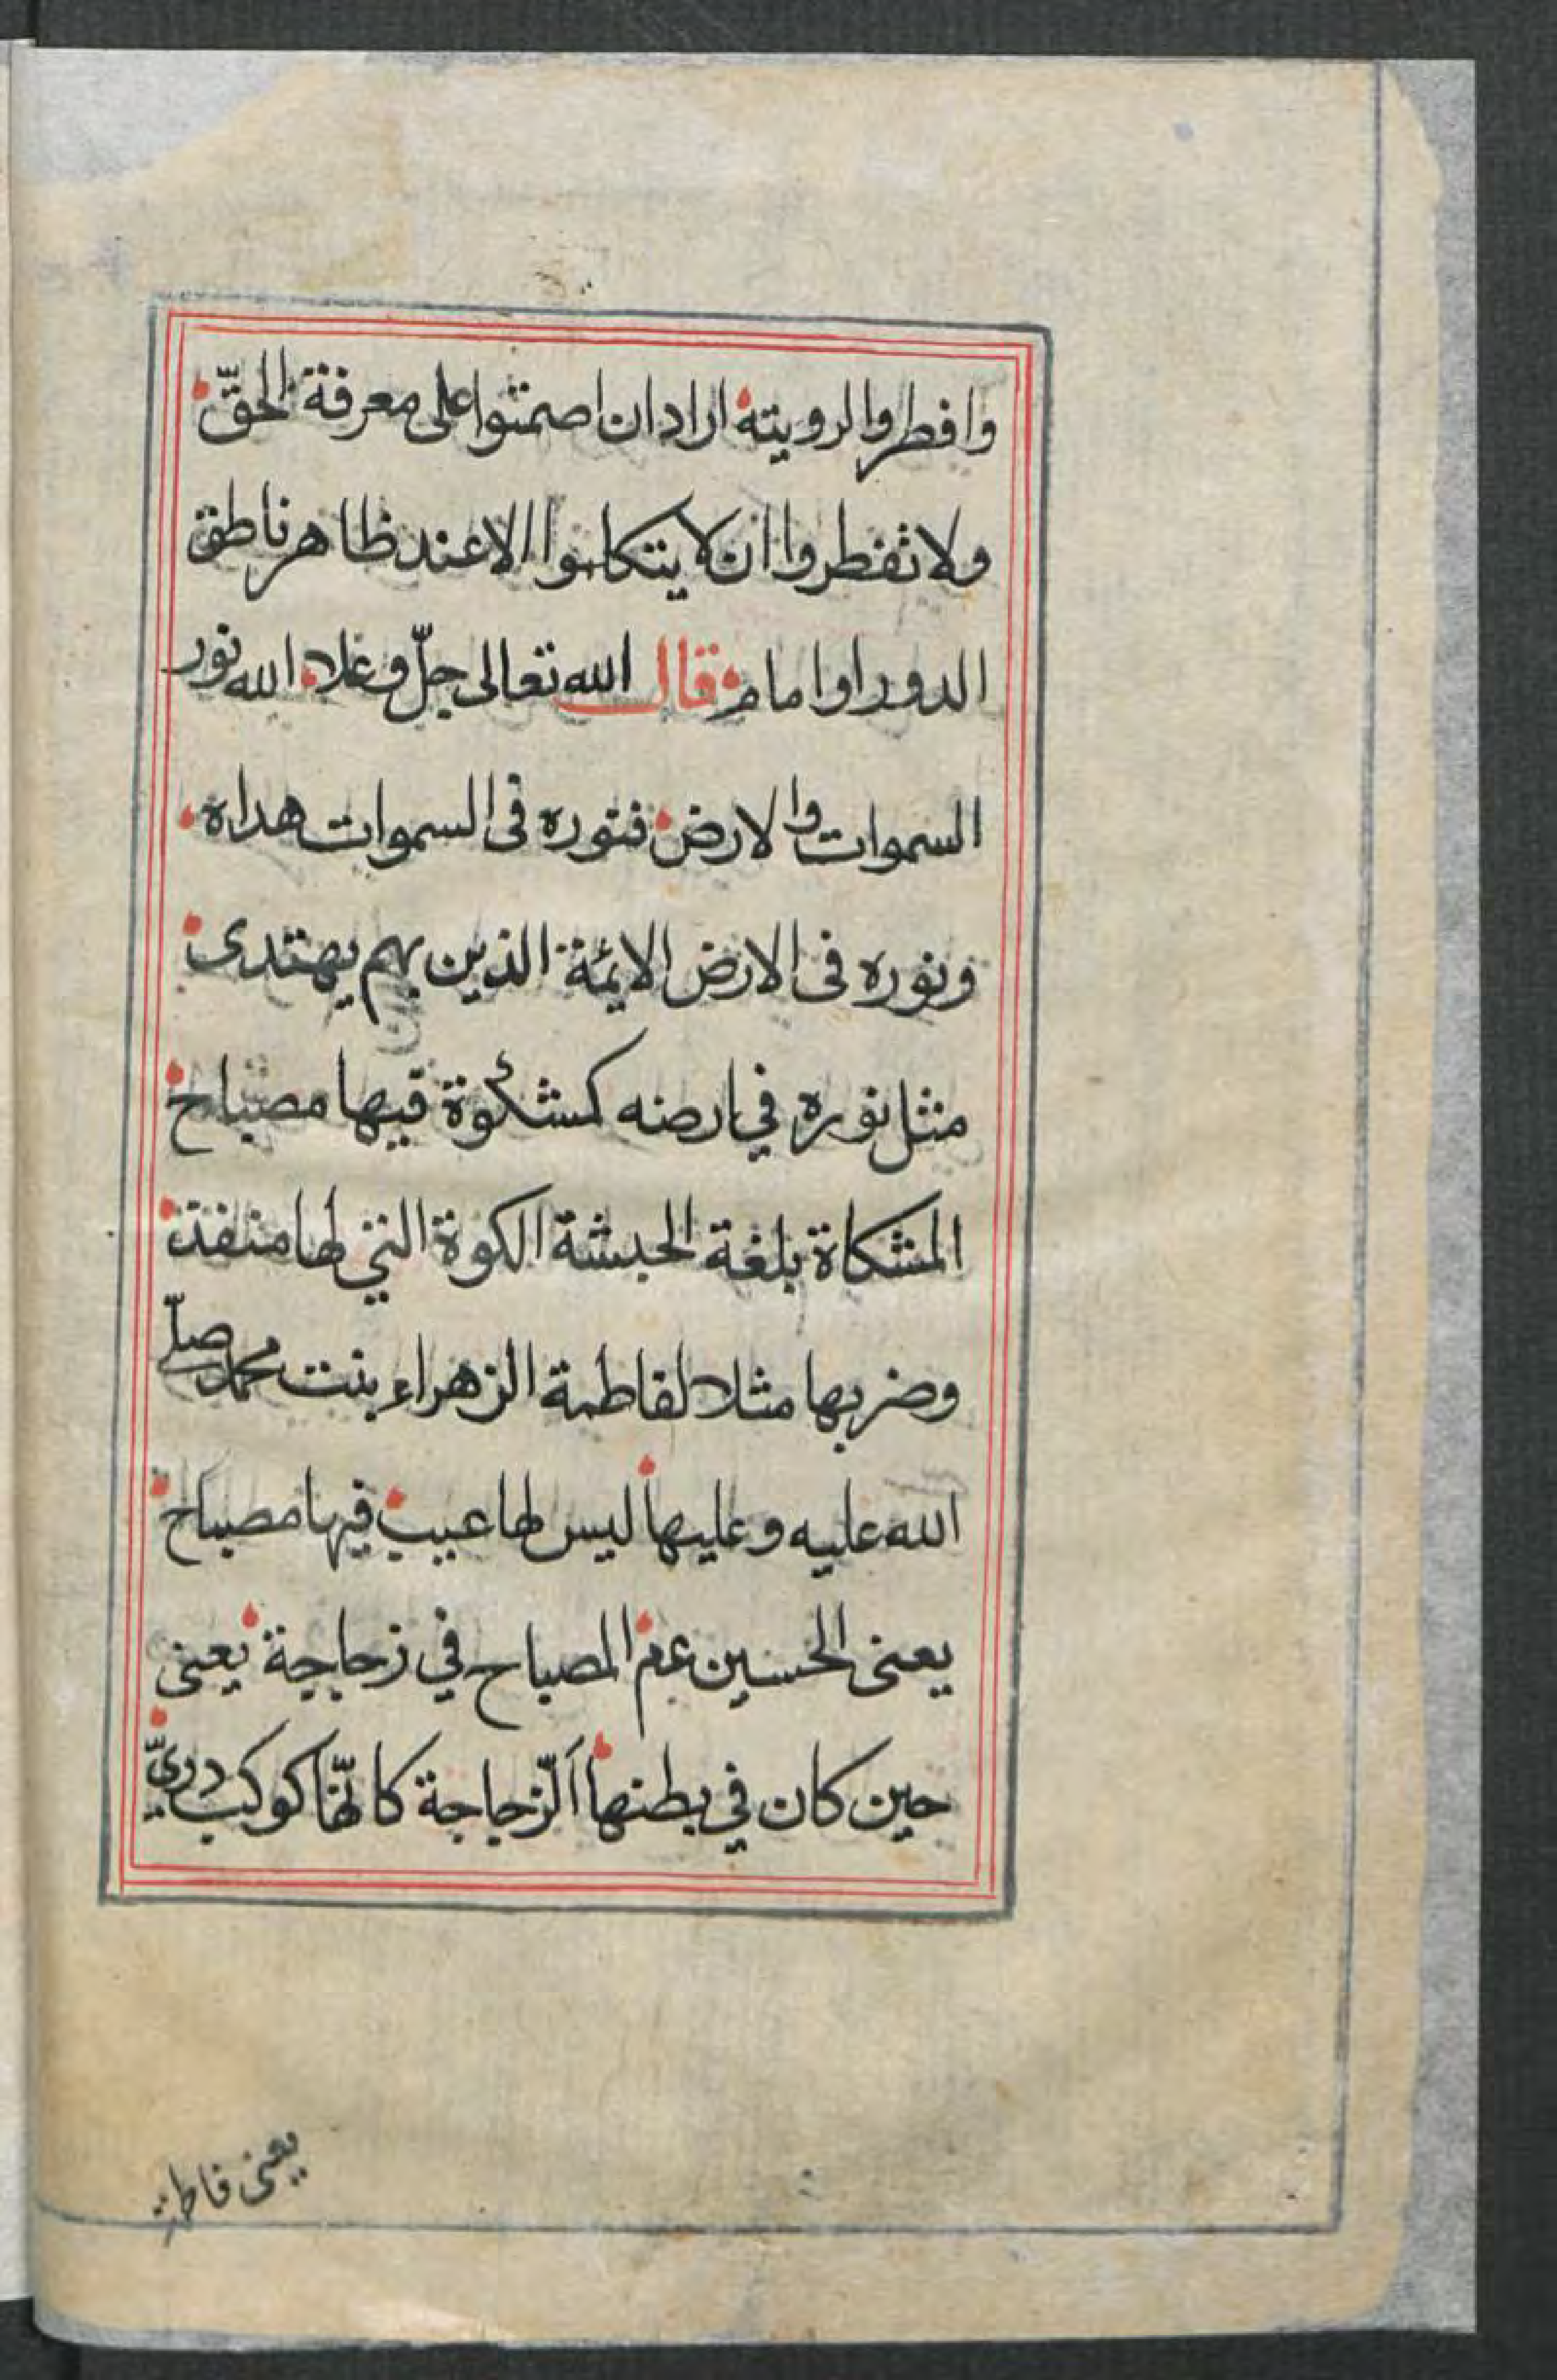 وافطروا لرويته اراد ان اصمتوا على معرفة الحقّ
ولا تفطروا ان لا يتكلموا الا عند ظاهر ناطق
الدور او امام قال الله تعالى جلّ وعلا الله نور
السموات والارض فنوره فى السموات هداه
ونوره فى الارض الائمة الذين بهم يهتدى
مثل نوره في ارضه كمشكوة فيها مصباح
المشكاة بلغة الحبشة الكوة التي لها منفذ
وضربها مثلا لفاطمة الزهراء بنت محمد صلّى
الله عليه وعليها ليس لها عيب فيها مصباح
يعنى الحسين عم المصباح في زجاجة يعنى
حين كان في بطنها الزّجاجة كانّها كوكب درىّ
يعنى فاطمة